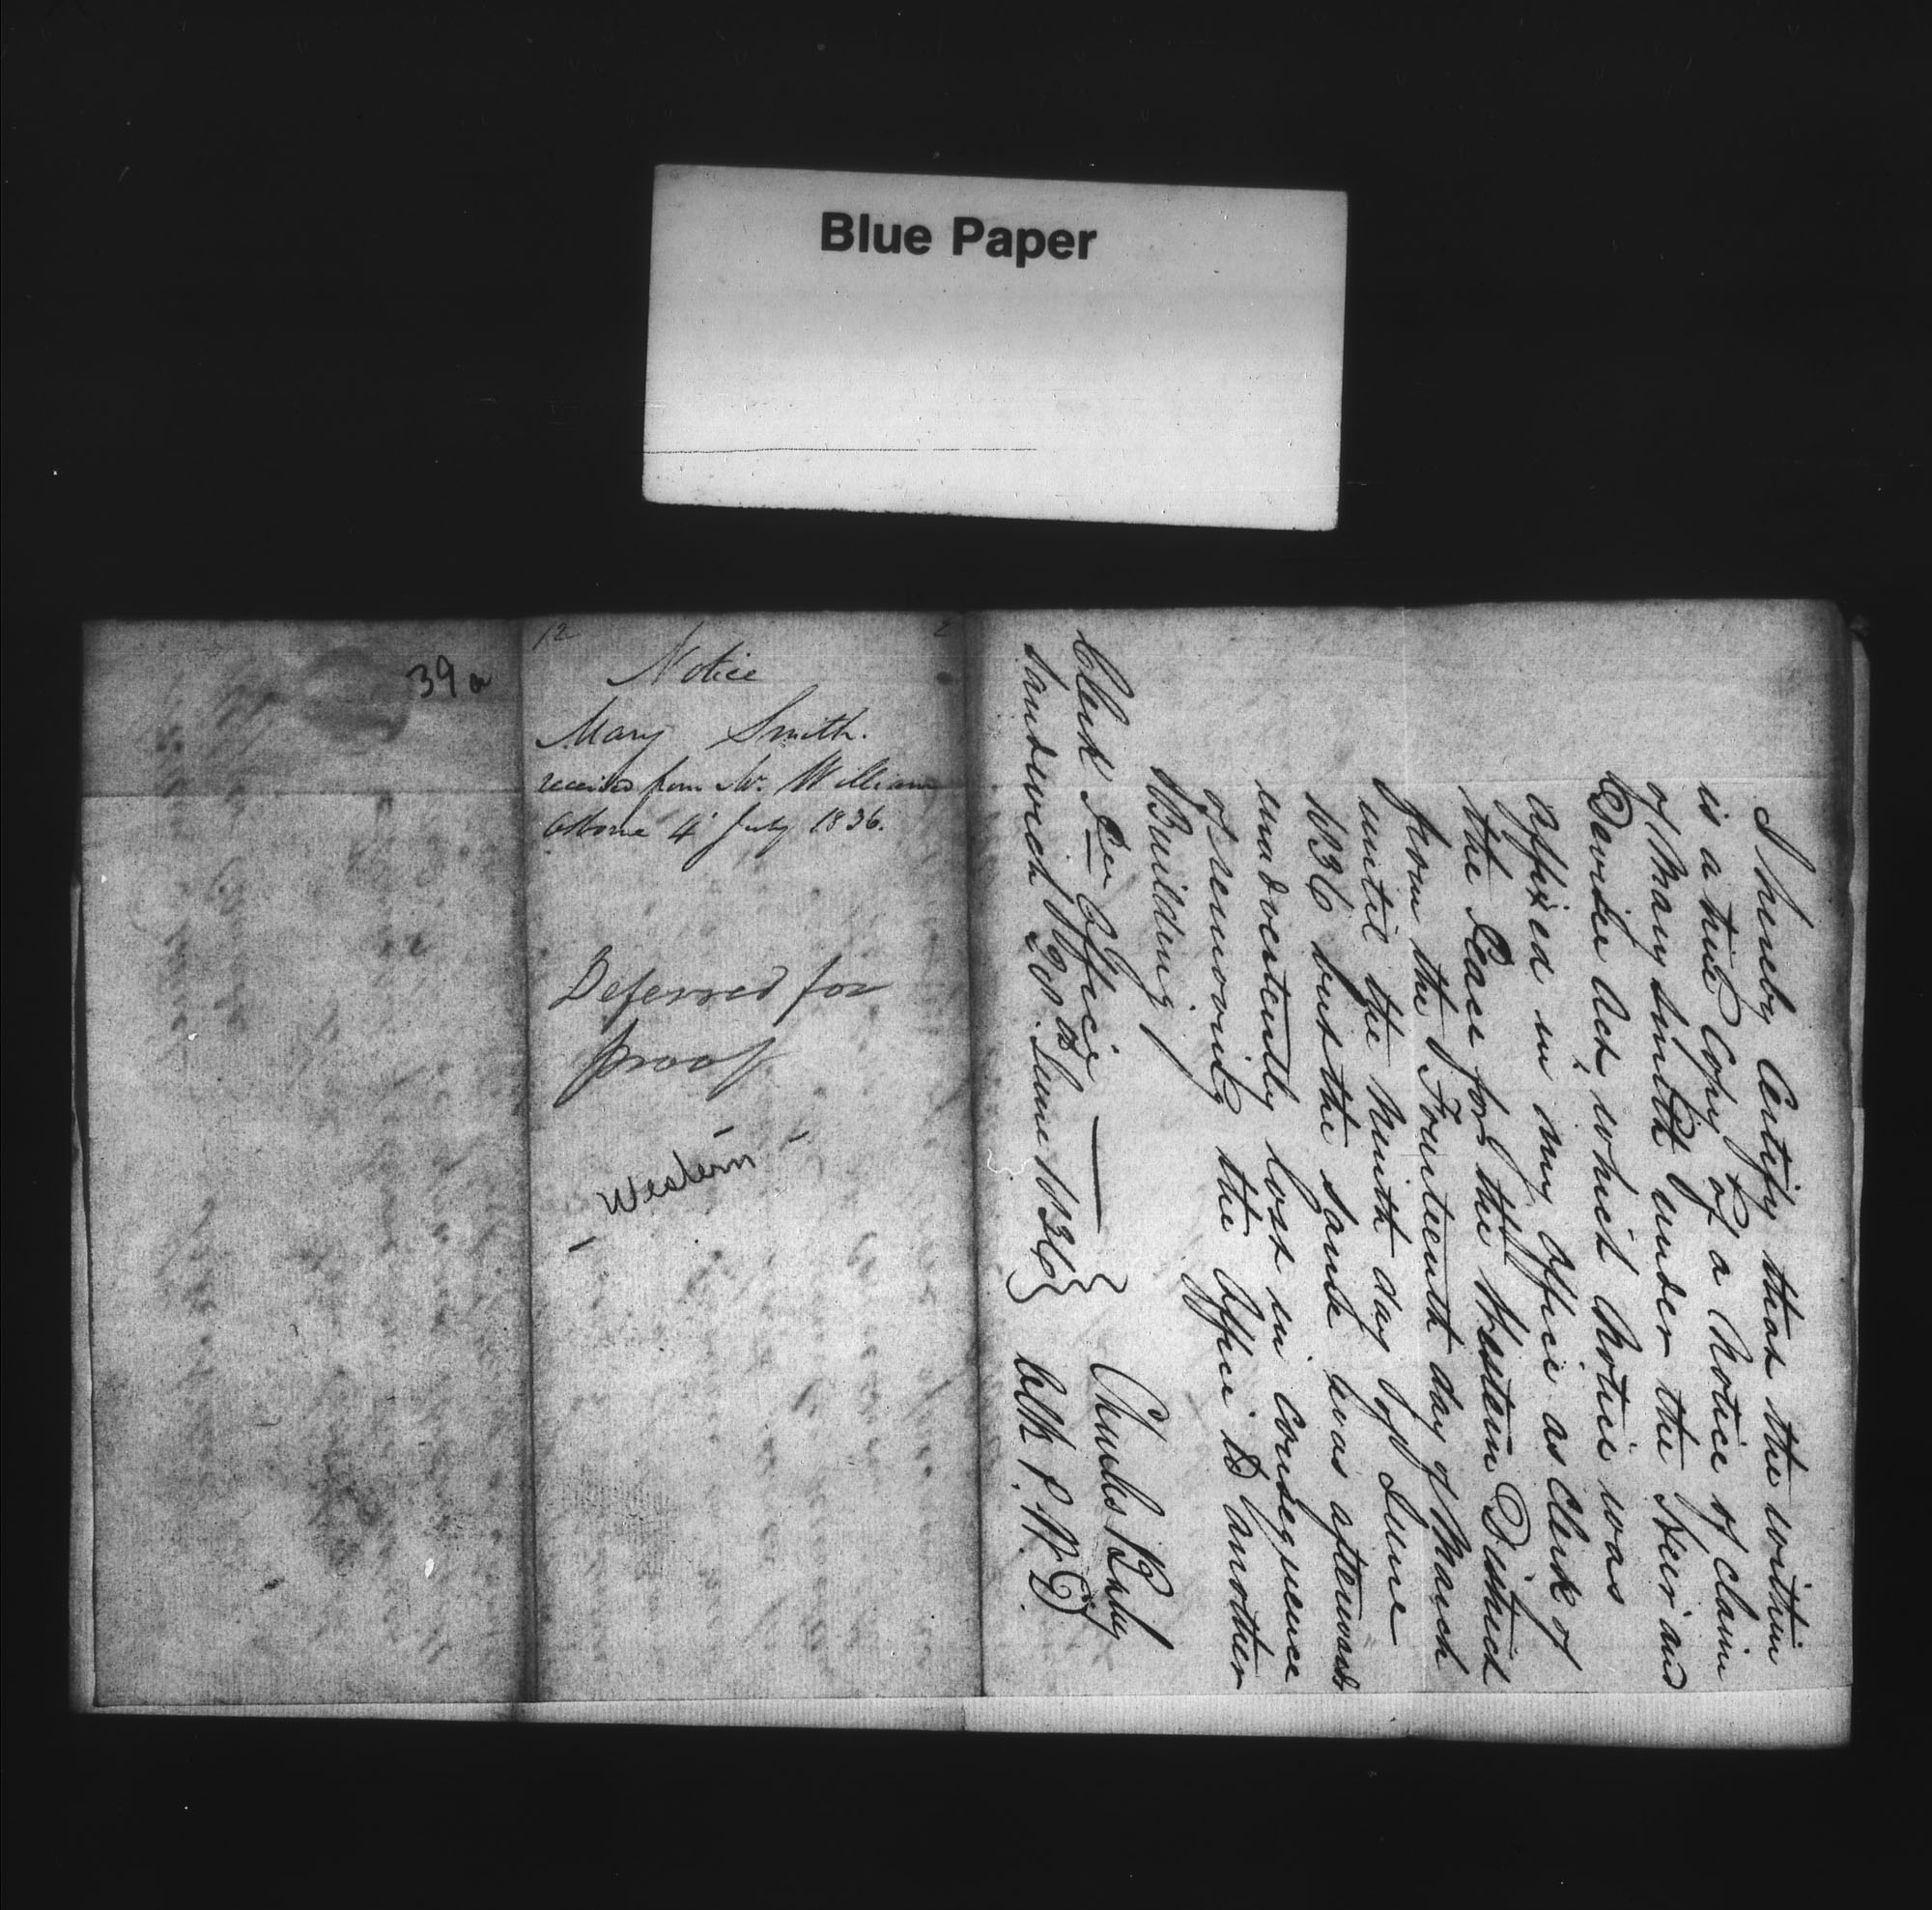 Blue Paper
39a
12
2
Notice
Mary Smith.
received from Mr. William
Osborne 4' July 1836.
Deferred for
proof
Western
I hereby Certify that the within
is a true Copy of a Notice of Claim
of Mary Smith under the Heir and
Devisee Act, which Notice was
affixed in my Office as Clerk of
the Peace for the Western District
from the Fourteenth day of March
until the Ninth day of June
1836 but the same was afterwards
inadvertently lost in Consequence
of removing the Office to another
Building
Clerk Peace Office
Sandwich June 1836
Charles Baby
Clk P. W. D.